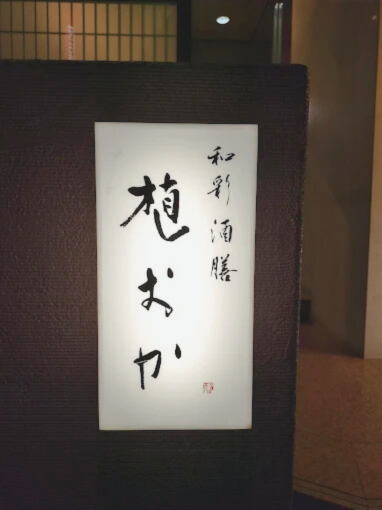 和彩酒膳
植おか